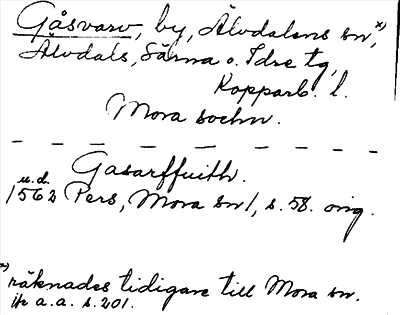 Gåsvarv, by, Älvdalens sn,x)
Älvdals, Särna o. Idre tg,
Kopparb. l.
Mora sochn.
Gasarffuith.
u.d.
1562 Pers, Mora sn/, s. 58. orig.
x) räknades tidigare till Mora sn.
a.a. s. 201.